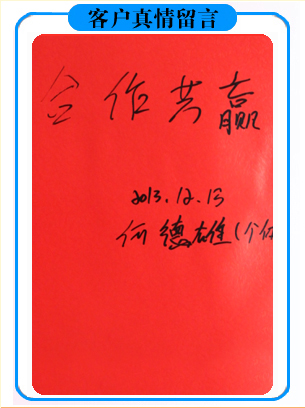 客户真情留言
合作共赢
2013.12.13
何德雄(个体